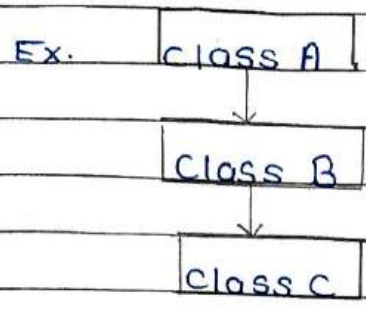 Ex. Class A
Class B
Class C